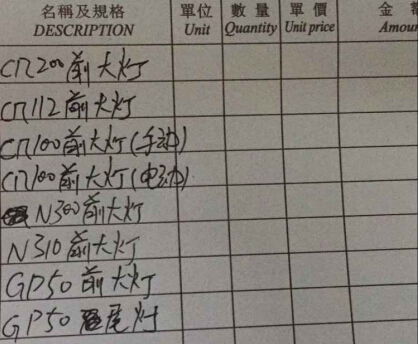 名稱及規格 單位 數量 單價 金
DESCRIPTION Unit Quantity Unit price Amoun
CR200前大灯
CR112前大灯
CR100前大灯(手动)
CR100前大灯(电动)
N300前大灯
N310前大灯
GP50前大灯
GP50尾灯